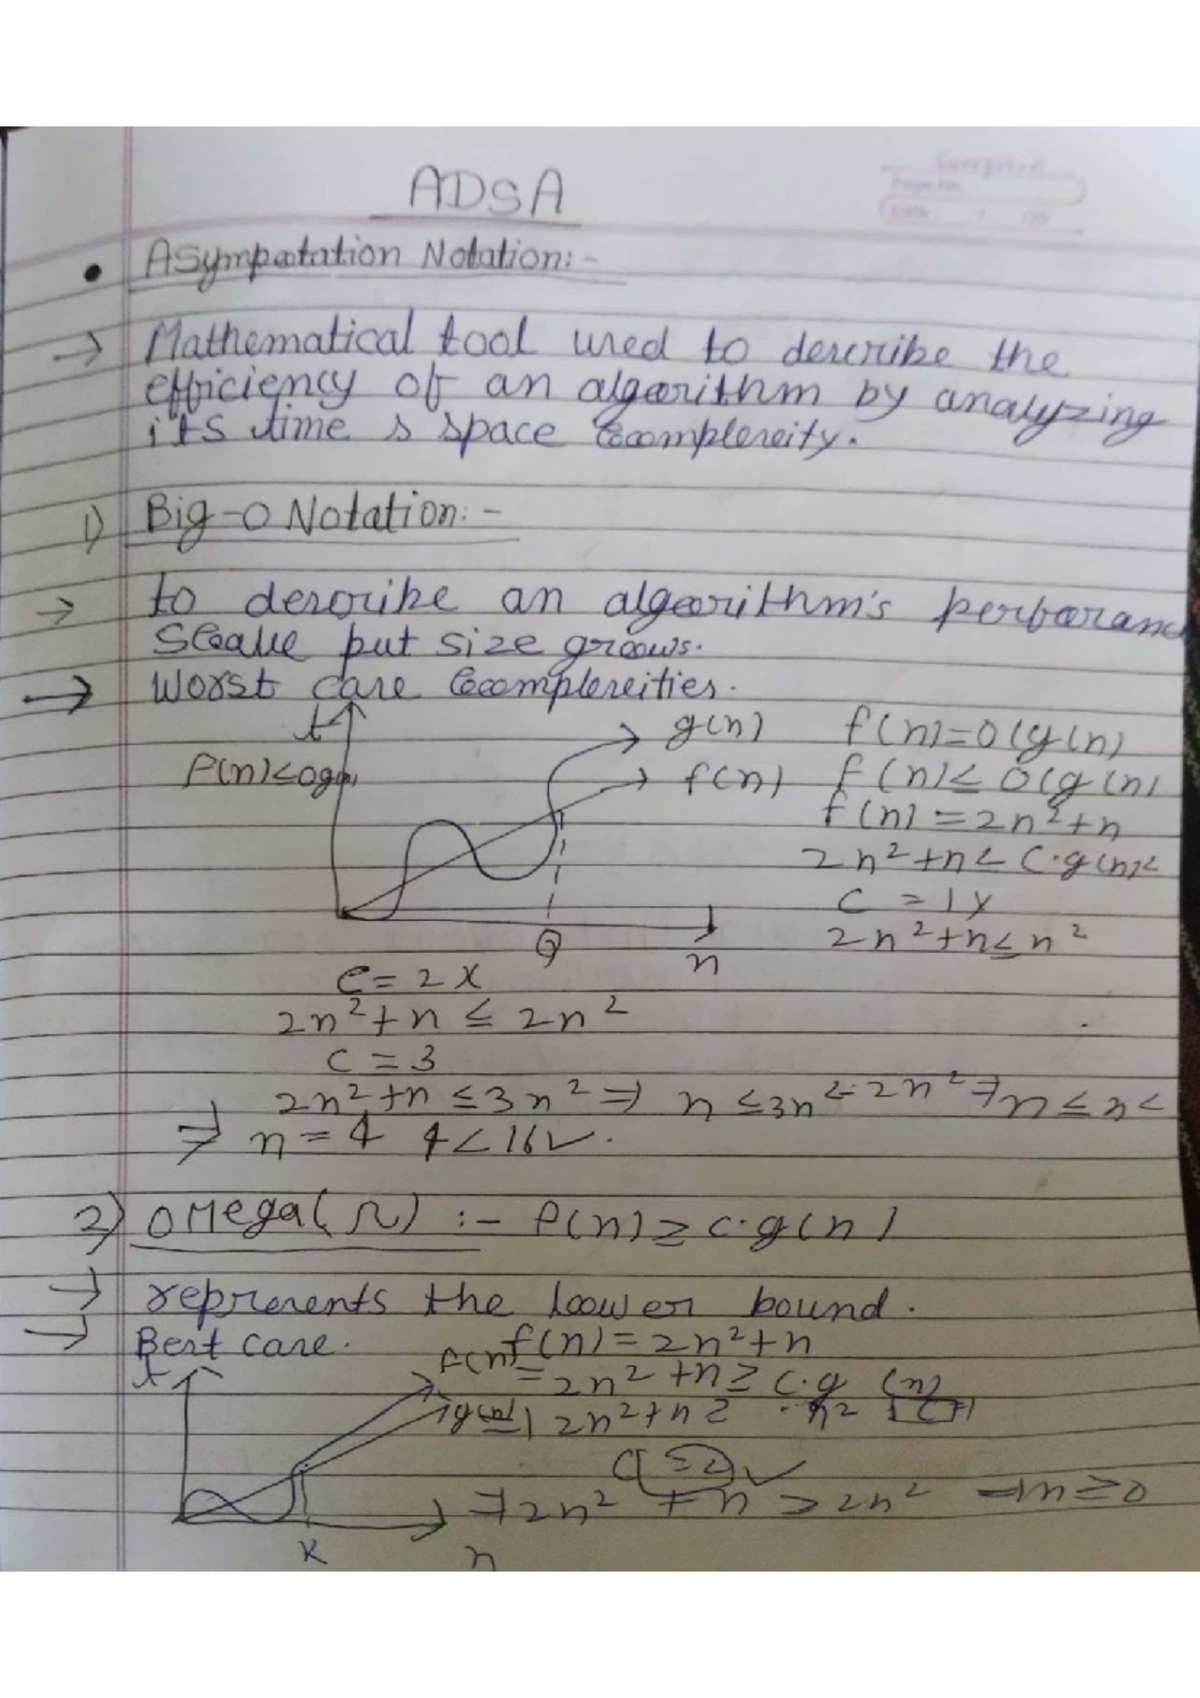 ADSA
• Asympotation Notation:-
→ Mathematical tool used to describe the
efficiency of an algorithm by analyzing
its time & space complexity.
1) Big-O Notation:-
→ to describe an algorithm's
Scale put size grows.
→ Worst case complexities.
t
g(n)
f(n)
n
f(n)=O(g(n)
f(n)≤ O(g(n)
f(n) = 2n²+n
2n²+n≤ C.g(n)
C = 1 x
2n²+n≤n²
C = 2 x
2n²+n ≤ 2n²
C = 3
2n²+n ≤3n² ⇒ n ≤3n²-2n² ⇒ n ≤ n²
⇒ n = 4 4<16✓.
2) Omega(Ω) :- f(n)≥ c.g(n)
→ represents the lower bound.
→ Best case.
f(n)=2n²+n
t
f(n)
= 2n²+n≥ c.g (n)
2n²+n≥
C=2 ✓
⇒ 2n² + n > 2n² ⇒ n≥0
K
n